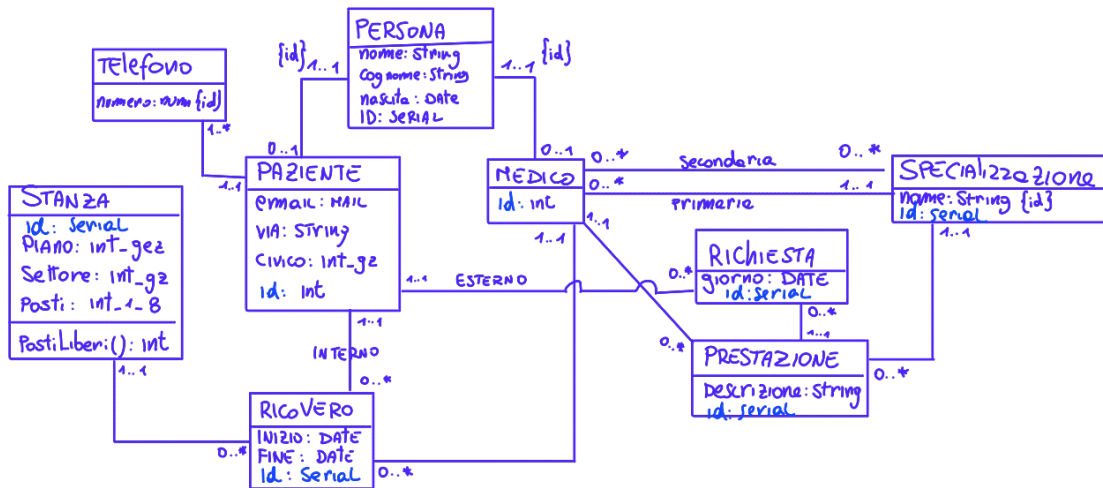 PERSONA
nome: String
cognome: String
nascita: DATE
ID: SERIAL
{id}
1..1
1..1
{id}
Telefono
numero: num {id}
1..*
1..1
0..1
PAZIENTE
email: MAIL
VIA: STring
CIVICO: Int_gz
id: int
0..1
MEDICO
id: int
0..*
secondaria
0..*
0..*
Primaria
1..1
SPECIALIZZAZIONE
name: String {id}
id: serial
1..1
STANZA
id: serial
PIANO: int_gez
Settore: int_gz
Posti: int_1_8
PostiLiberi(): int
1..1
1..1
ESTERNO
0..*
RICHIESTA
giorno: DATE
id: serial
0..*
1..1
1..1
1..1
1..1
INTERNO
0..*
0..*
PRESTAZIONE
Descrizione: String
id: serial
0..*
RICOVERO
INIZIO: DATE
FINE: DATE
id: serial
0..*
0..*